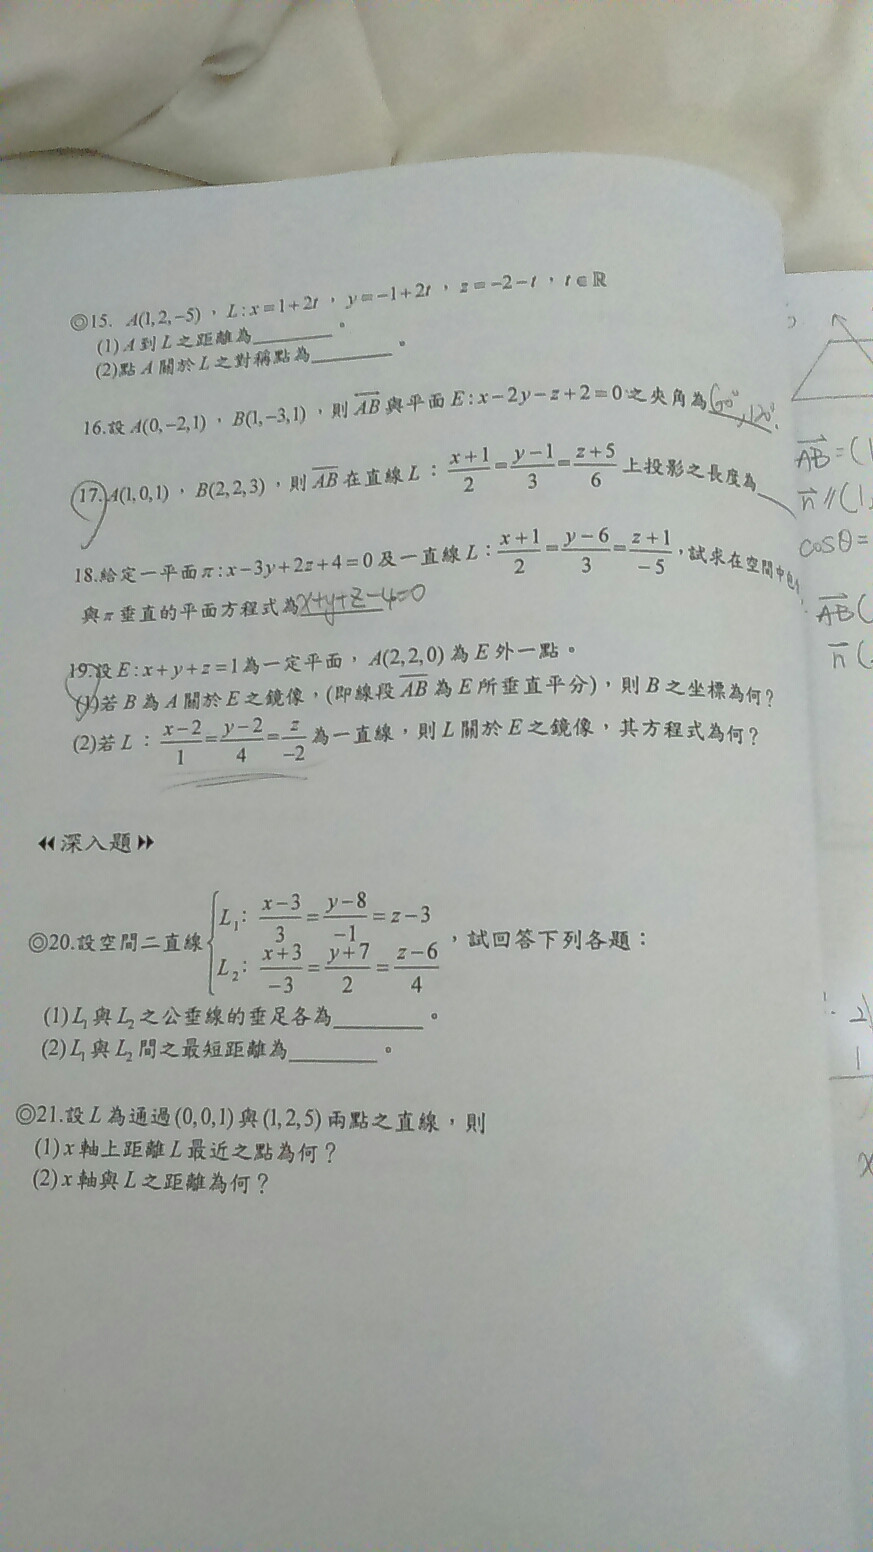 ◎15. A(1,2,-5)，L:x=1+2t，y=-1+2t，z=-2-t，t∈ℝ
(1)A到L之距離為________。
(2)點A關於L之對稱點為________。
16.設A(0,-2,1)，B(1,-3,1)，則AB與平面E:x-2y-z+2=0之夾角為60°,120°.
17.A(1,0,1)，B(2,2,3)，則AB在直線L：(x+1)/2=(y-1)/3=(z+5)/6上投影之長度為____
18.給定一平面π:x-3y+2z+4=0及一直線L:(x+1)/2=(y-6)/3=(z+1)/-5，試求在空間中包
與π垂直的平面方程式為x+y+z-4=0
19.設E:x+y+z=1為一定平面，A(2,2,0)為E外一點。
(1)若B為A關於E之鏡像，(即線段AB為E所垂直平分)，則B之坐標為何？
(2)若L：(x-2)/1=(y-2)/4=z/-2為一直線，則L關於E之鏡像，其方程式為何？
◀◀深入題▶▶
◎20.設空間二直線{L₁: (x-3)/3=(y-8)/-1=z-3
L₂: (x+3)/-3=(y+7)/2=(z-6)/4，試回答下列各題：
(1)L₁與L₂之公垂線的垂足各為________。
(2)L₁與L₂間之最短距離為________。
◎21.設L為通過(0,0,1)與(1,2,5)兩點之直線，則
(1)x軸上距離L最近之點為何？
(2)x軸與L之距離為何？
AB=(1
n//(1,
cosθ=
AB(
n(
2
1
x